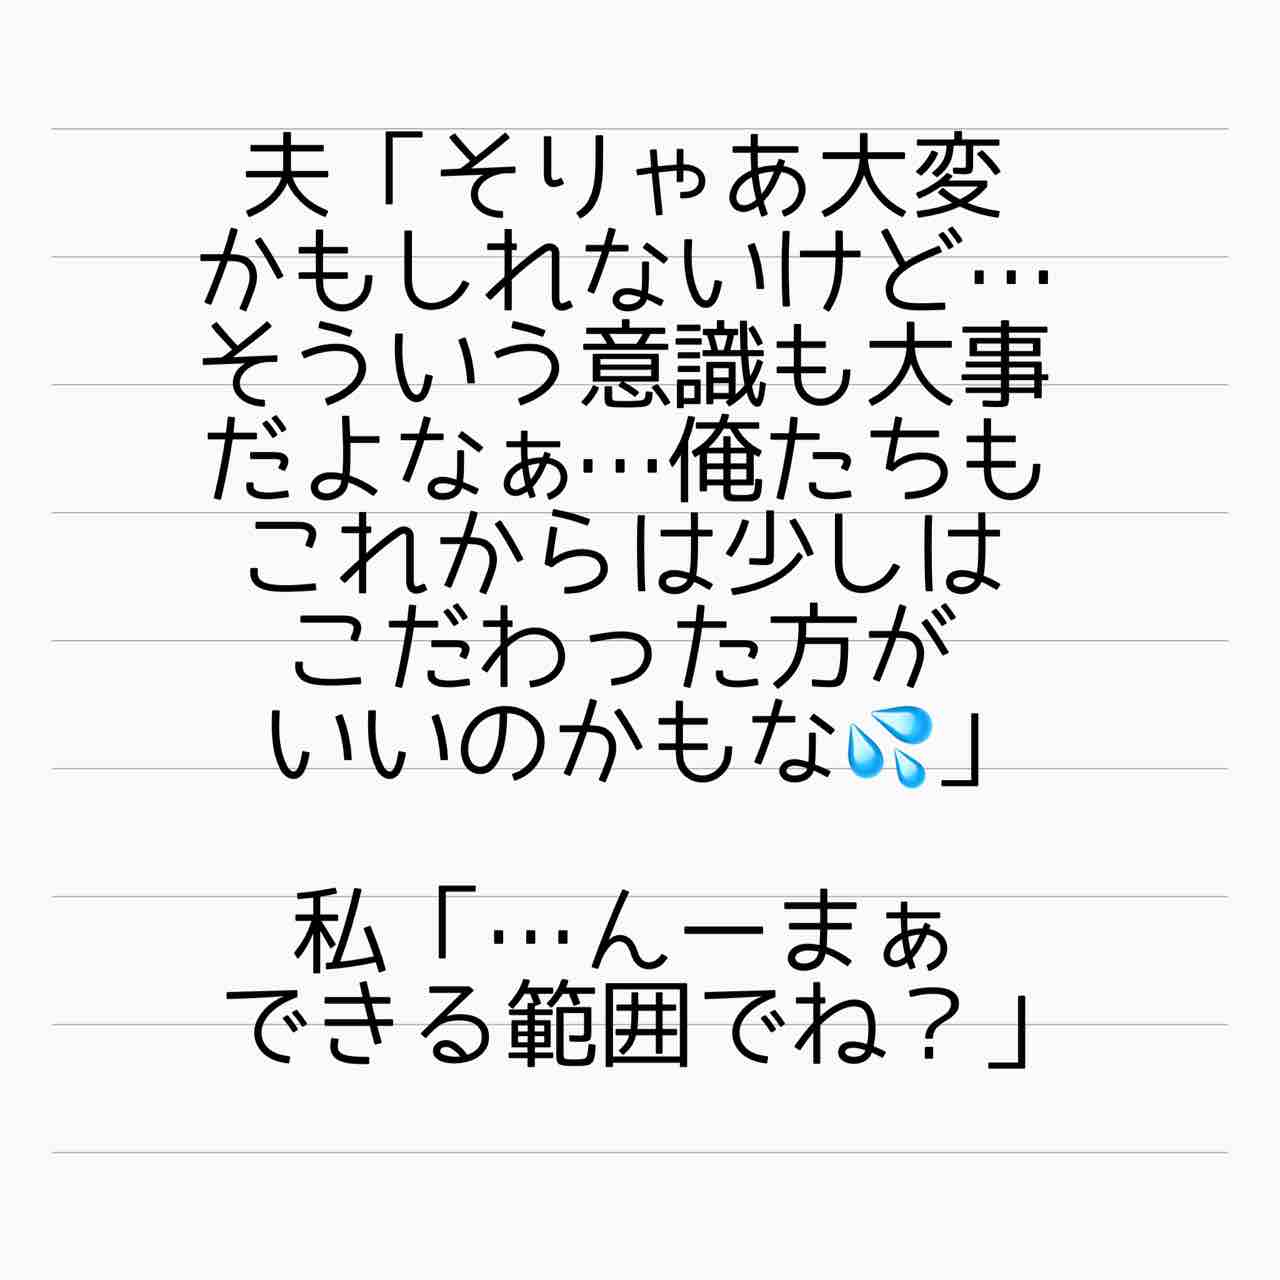 夫「そりゃあ大変
かもしれないけど…
そういう意識も大事
だよなぁ…俺たちも
これからは少しは
こだわった方が
いいのかもな💦」
私「…んーまぁ
できる範囲でね？」